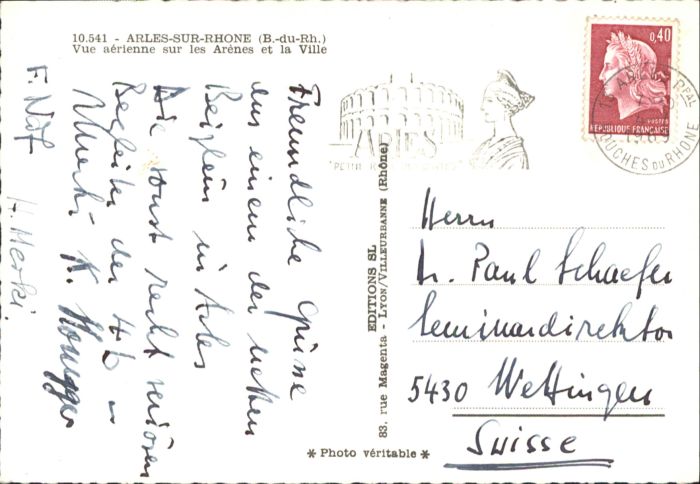 10.541 - ARLES-SUR-RHONE (B.-du-Rh.)
Vue aérienne sur les Arènes et la Ville
Freundliche Grüsse
aus einem der netten
Beizlein in Arles
Die sonst recht seriösen
Begleiter der 4b
K. Honegger
F. Näf
H. Merki
EDITIONS SL
83, rue Magenta - LYON/VILLEURBANNE (Rhône)
* Photo véritable *
ARLES
0,40
POSTES
REPUBLIQUE FRANÇAISE
BOUCHES DU RHONE
Herrn
Dr. Paul Schaefer
Seminardirektor
5430 Wettingen
Suisse